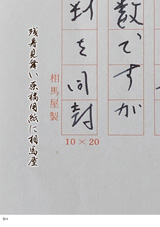 数ですが
料を同封
相馬屋製
10×20
残暑見舞い原稿用紙に相馬屋